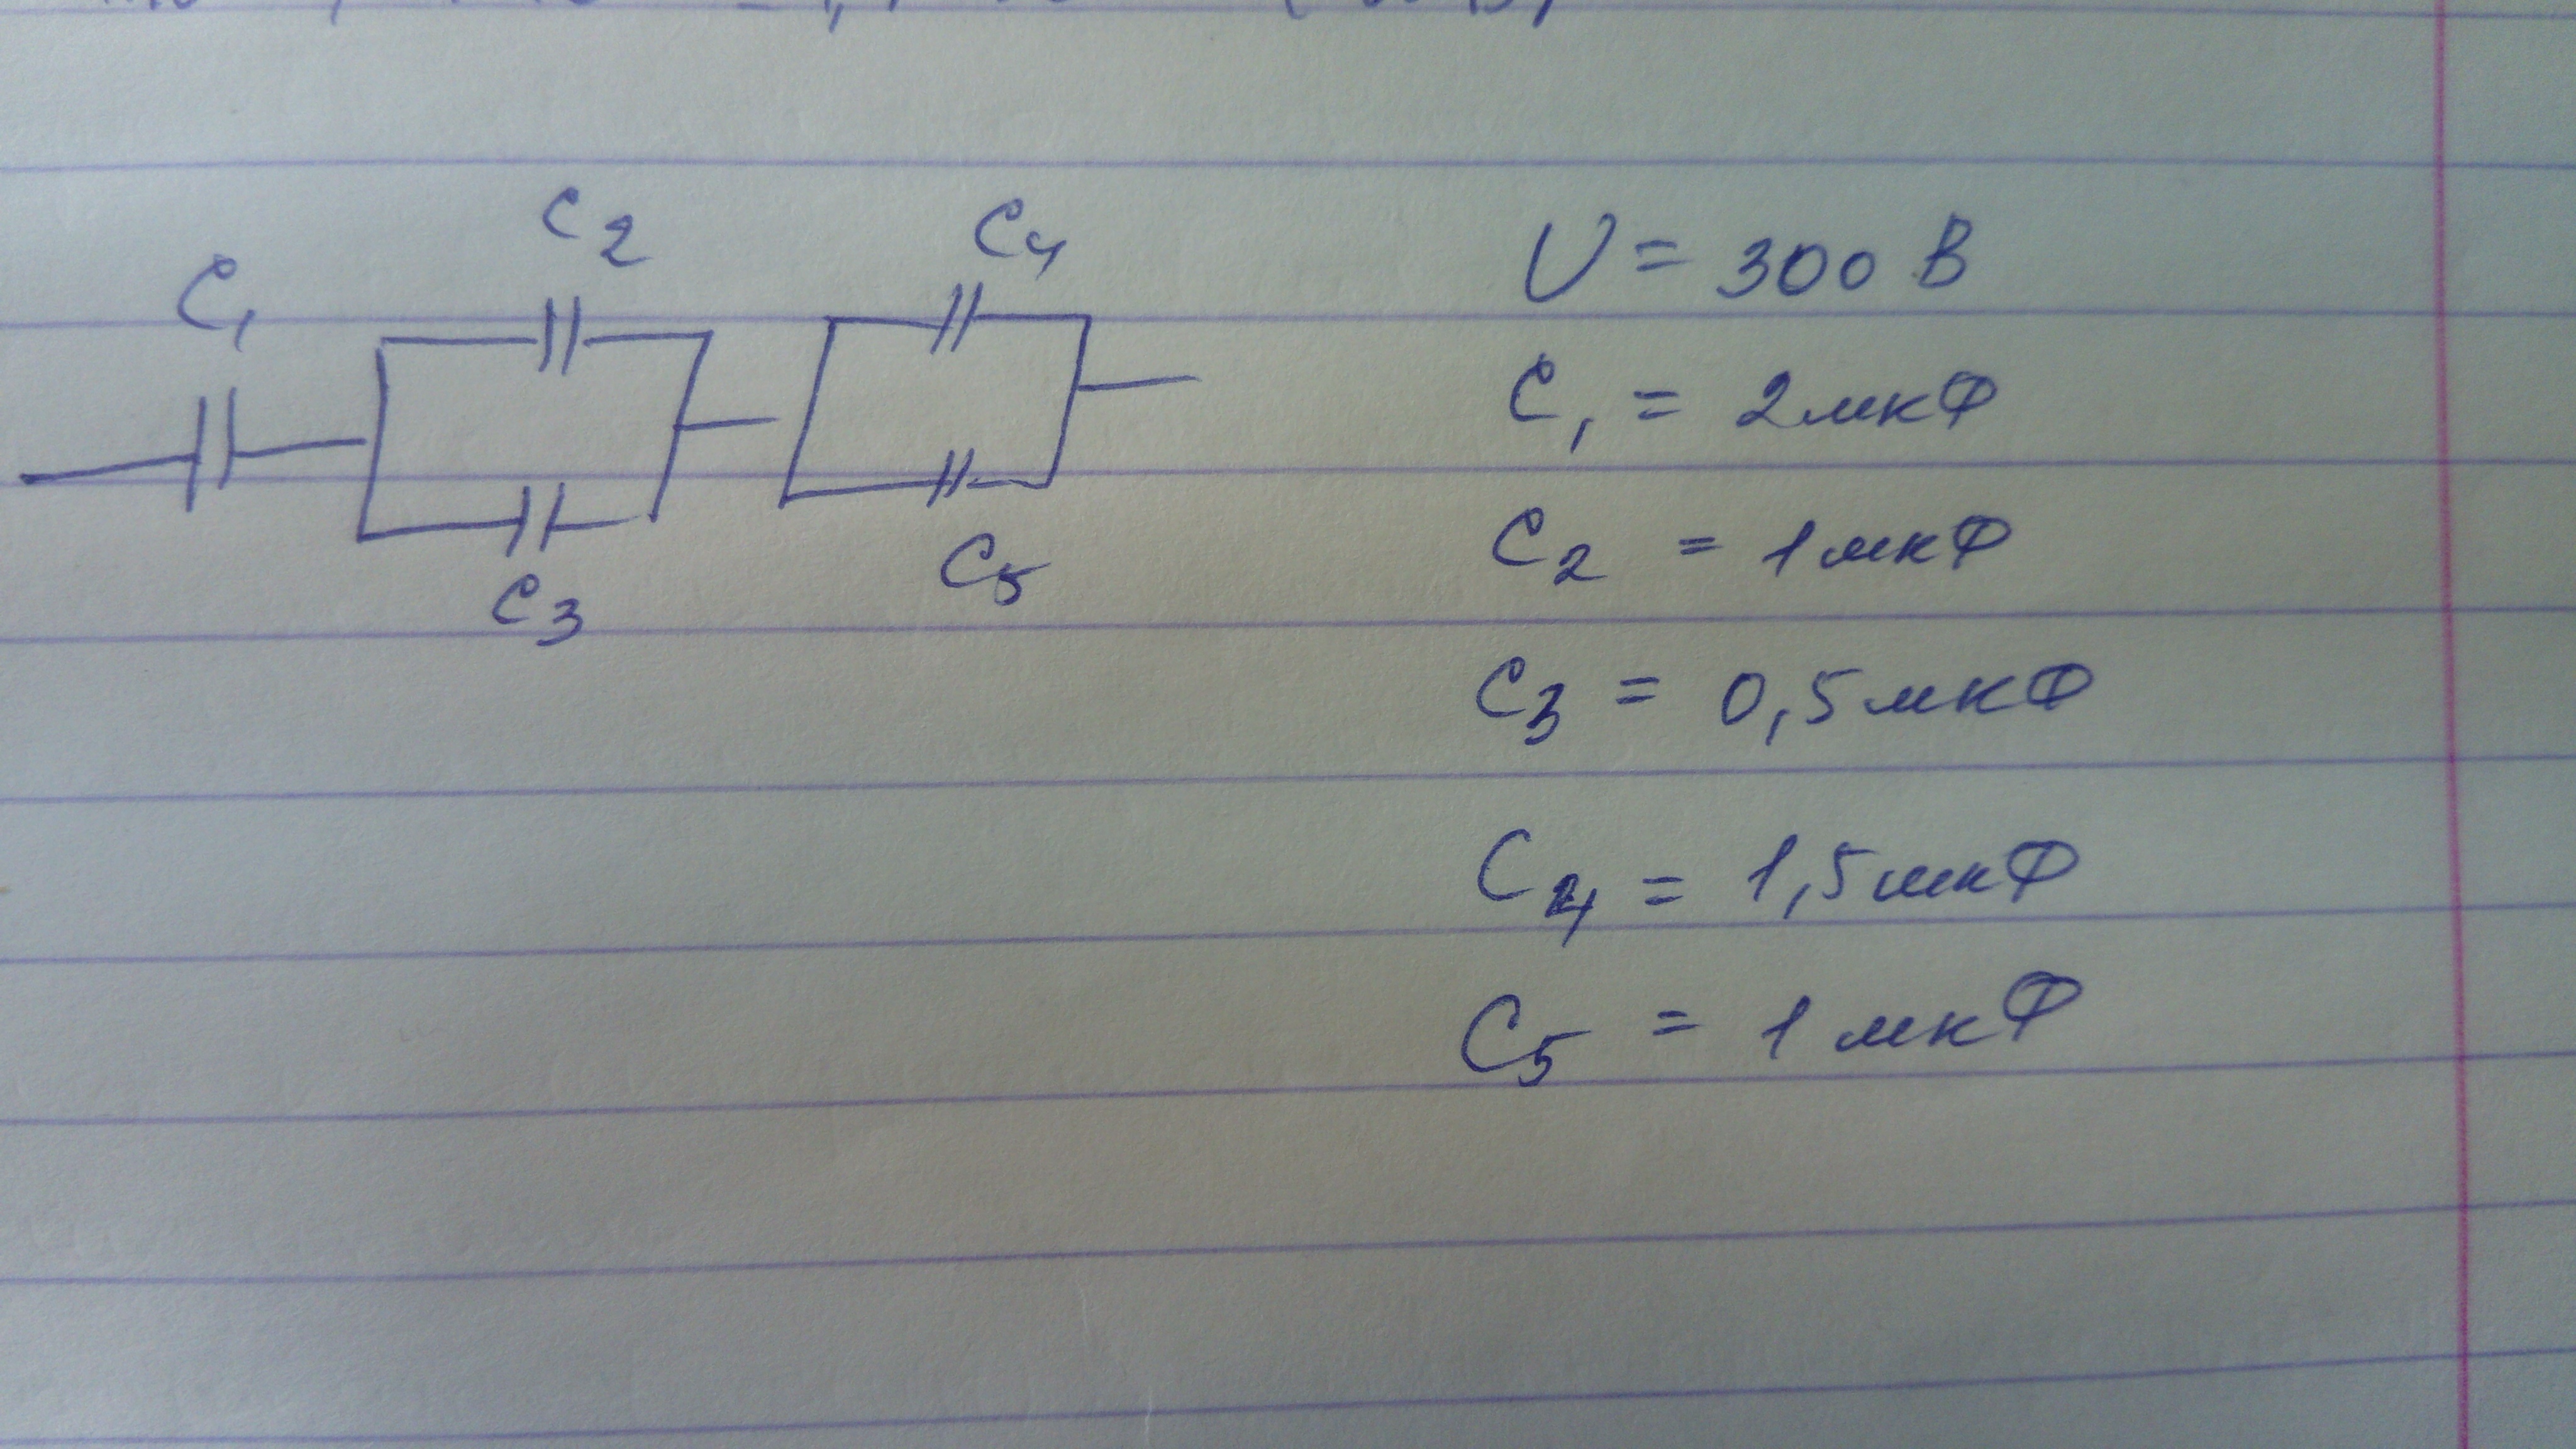 C2 C4
C1
C3 C5
U = 300 В
C1 = 2 мкФ
C2 = 1 мкФ
C3 = 0,5 мкФ
C4 = 1,5 мкФ
C5 = 1 мкФ